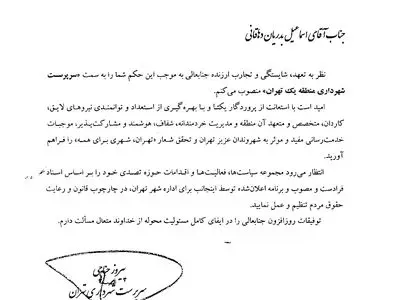 جناب آقای اسماعیل بدریان دهاقانی
نظر به تعهد، شایستگی و تجارب ارزنده جنابعالی به موجب این حکم شما را به سمت «سرپرست
شهرداری منطقه یک تهران» منصوب می‌کنم.
امید است با استعانت از پروردگار یکتا و بـا بهـره‌گیـری از اسـتعداد و توانمنـدی نیروهای لایـق،
کاردان، متخصص و متعهد آن منطقه و مدیریت خردمندانه، شفاف، هوشمند و مشارکت‌پـذیر، موجبـات
خدمت‌رسانی مفید و موثر به شهروندان عزیز تهران و تحقق شعار «تهـران، شـهری بـرای همـه» را فـراهم
آورید.
انتظار می‌رود مجموعه سیاست‌ها، فعالیـت‌هـا و اقدامات حوزه تصـدی خـود را بـر اسـاس اسـناد
فرادست و مصوب و برنامه اعلان‌شده توسط اینجانب برای اداره شهر تهران، در چارچوب قانون و رعایت
حقوق مردم تنظیم و عمل نمایید.
توفیقات روزافزون جنابعالی را در ایفای کامل مسئولیت محوله از خداوند متعال مسألت دارم.
پیروز حناچی
سرپرست شهرداری تهران